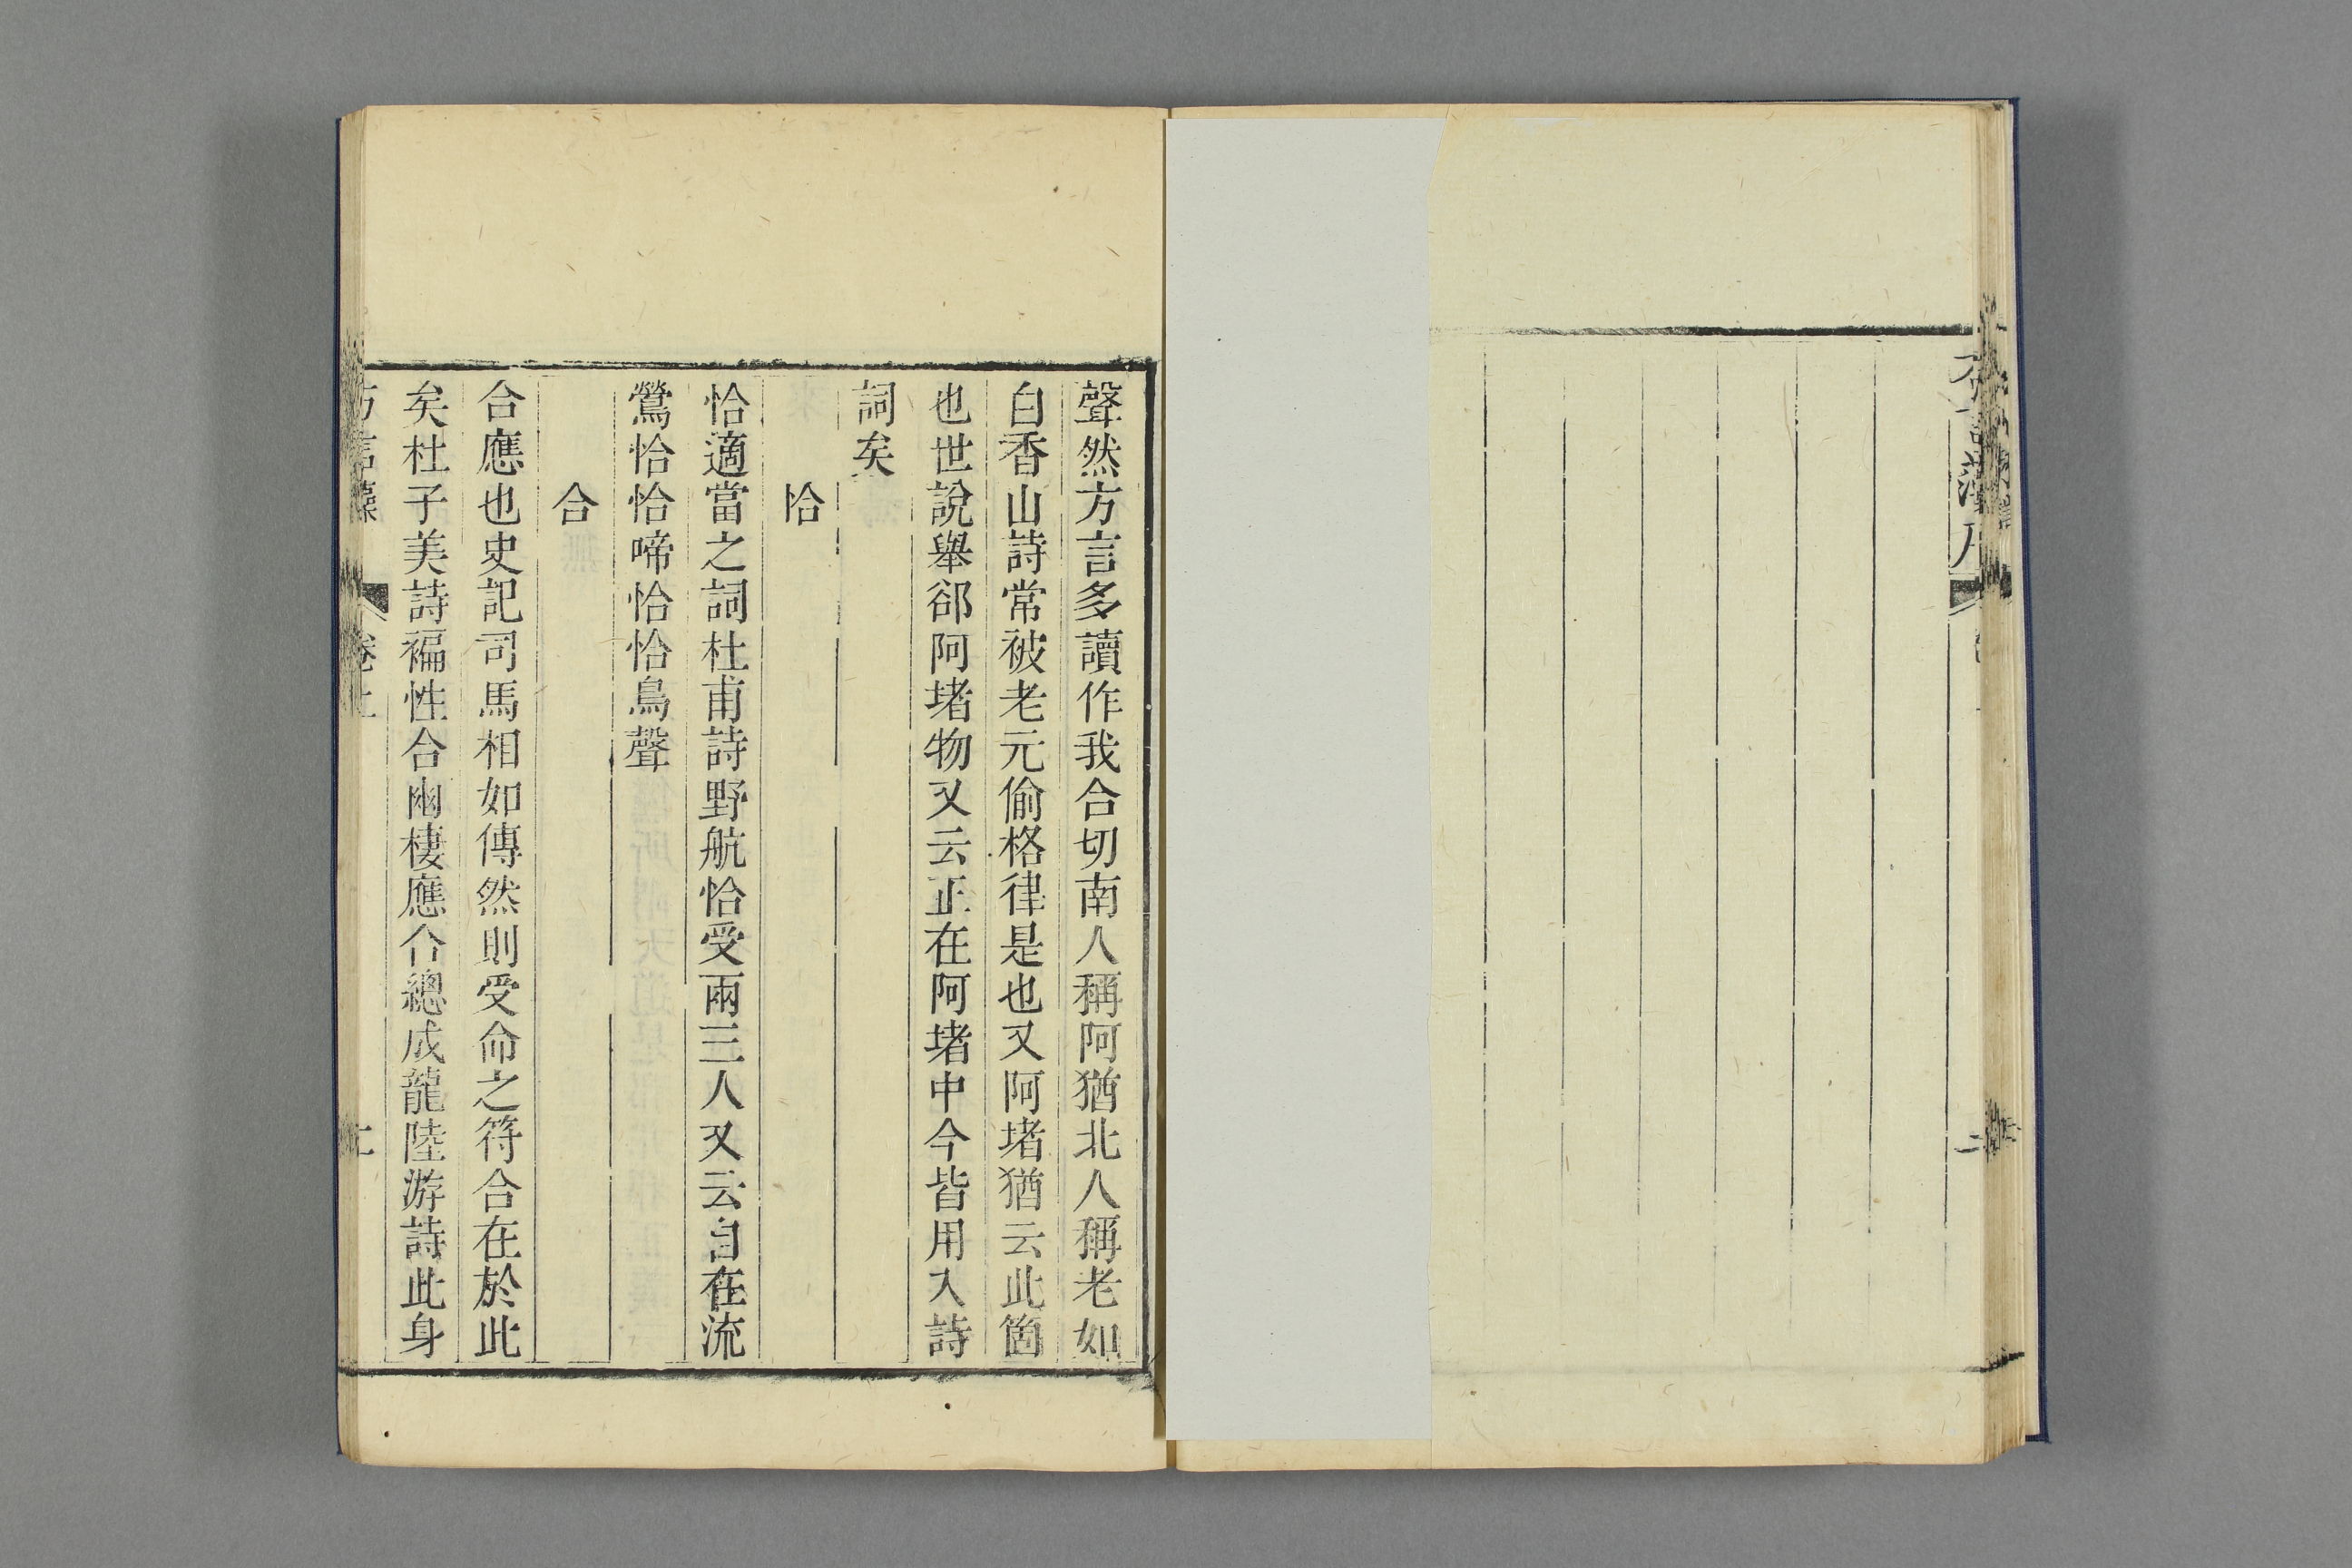 聲然方言多讀作我合切南人稱阿猶北人稱老如
白香山詩常被老元偷格律是也又阿堵猶云此箇
也世說舉郤阿堵物又云正在阿堵中今皆用入詩
詞矣
恰
恰適當之詞杜甫詩野航恰受兩三人又云自在流
鶯恰恰啼恰恰鳥聲
合
合應也史記司馬相如傳然則受命之符合在於此
矣杜子美詩褊性合幽棲應合總成龍陸游詩此身
方言藻 卷上